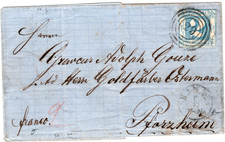 Herrn
Graveur Adolph Gouze
bei Herrn Goldfärber Ostermann
franco
Pforzheim